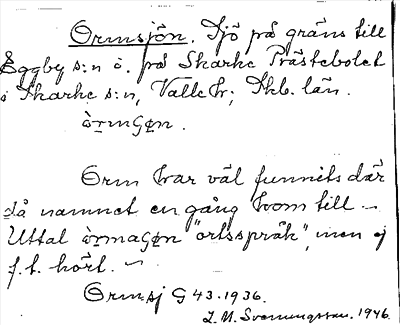 Ormsjön. Sjö på gräns till
Eggby s:n ö. på Skarke Prästebolet
i Skarke s:n, Valle hr; Skb. län.
òrmʃøn.
Orm har väl funnits där
då namnet en gång kom till –
Uttal òrmaʃøn "ortsspråk", men ej
f.t. hört. –
Ormsj G 43. 1936.
L. M. Svenungsson. 1946.